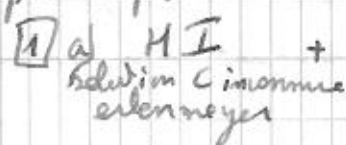 1 a) H I +
Solution C inconnue
erlenmeyer